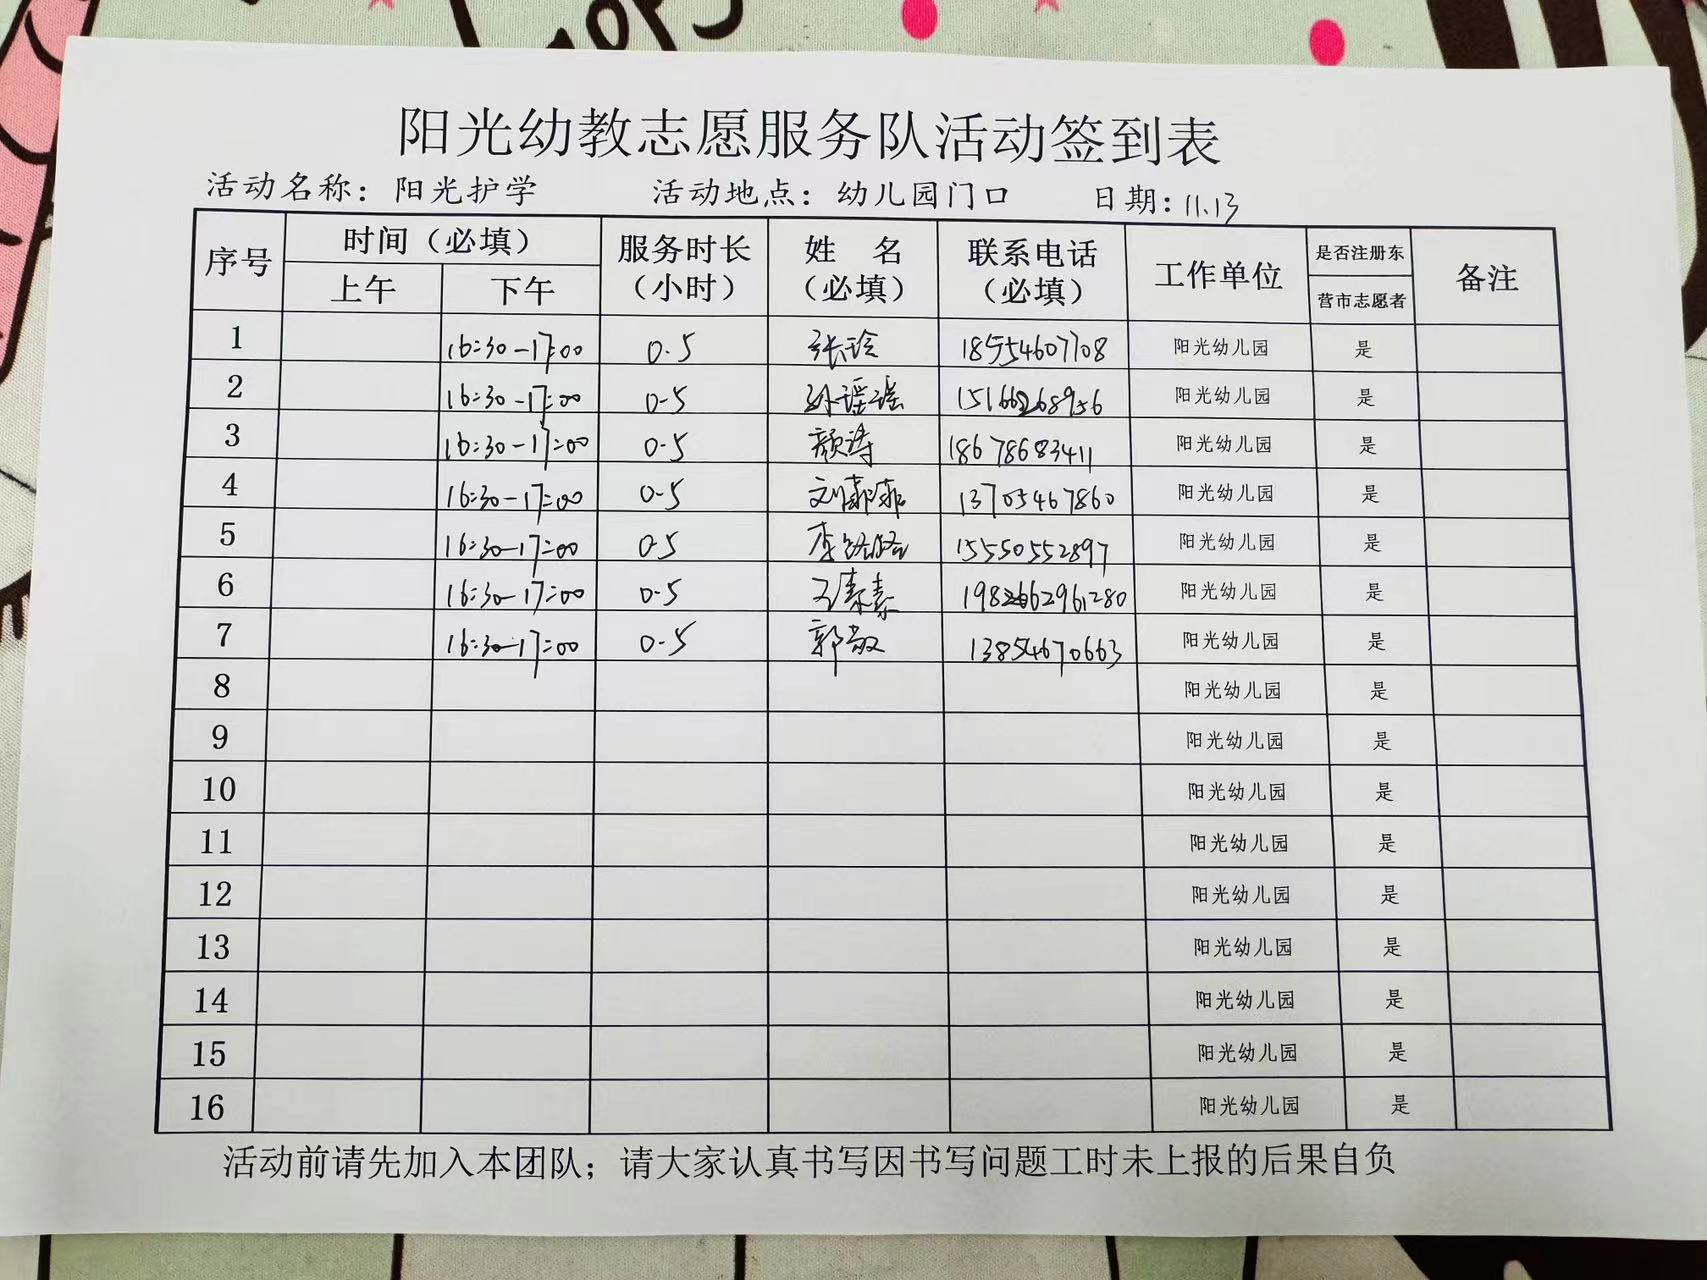 阳光幼教志愿服务队活动签到表
活动名称：阳光护学 活动地点：幼儿园门口 日期：11.13
序号 时间（必填） 服务时长（小时） 姓 名（必填） 联系电话（必填） 工作单位 是否注册东营市志愿者 备注
上午 下午
1 16:30-17:00 0.5 张玲 18554607708 阳光幼儿园 是
2 16:30-17:00 0.5 孙瑶瑶 15166268956 阳光幼儿园 是
3 16:30-17:00 0.5 颜涛 18678683411 阳光幼儿园 是
4 16:30-17:00 0.5 刘菲菲 13705467860 阳光幼儿园 是
5 16:30-17:00 0.5 李 15550552897 阳光幼儿园 是
6 16:30-17:00 0.5 王素素 阳光幼儿园 是
7 16:30-17:00 0.5 郭敏 13854670663 阳光幼儿园 是
8 阳光幼儿园 是
9 阳光幼儿园 是
10 阳光幼儿园 是
11 阳光幼儿园 是
12 阳光幼儿园 是
13 阳光幼儿园 是
14 阳光幼儿园 是
15 阳光幼儿园 是
16 阳光幼儿园 是
活动前请先加入本团队；请大家认真书写因书写问题工时未上报的后果自负